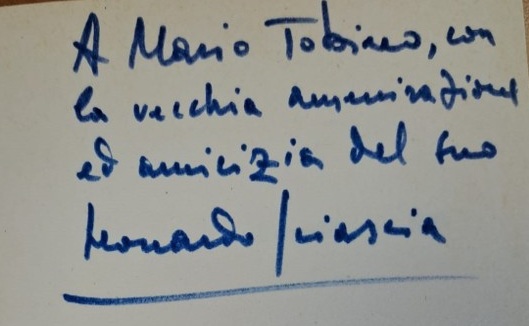 A Mario Tobino, con
la vecchia ammirazione
ed amicizia del suo
Leonardo Sciascia